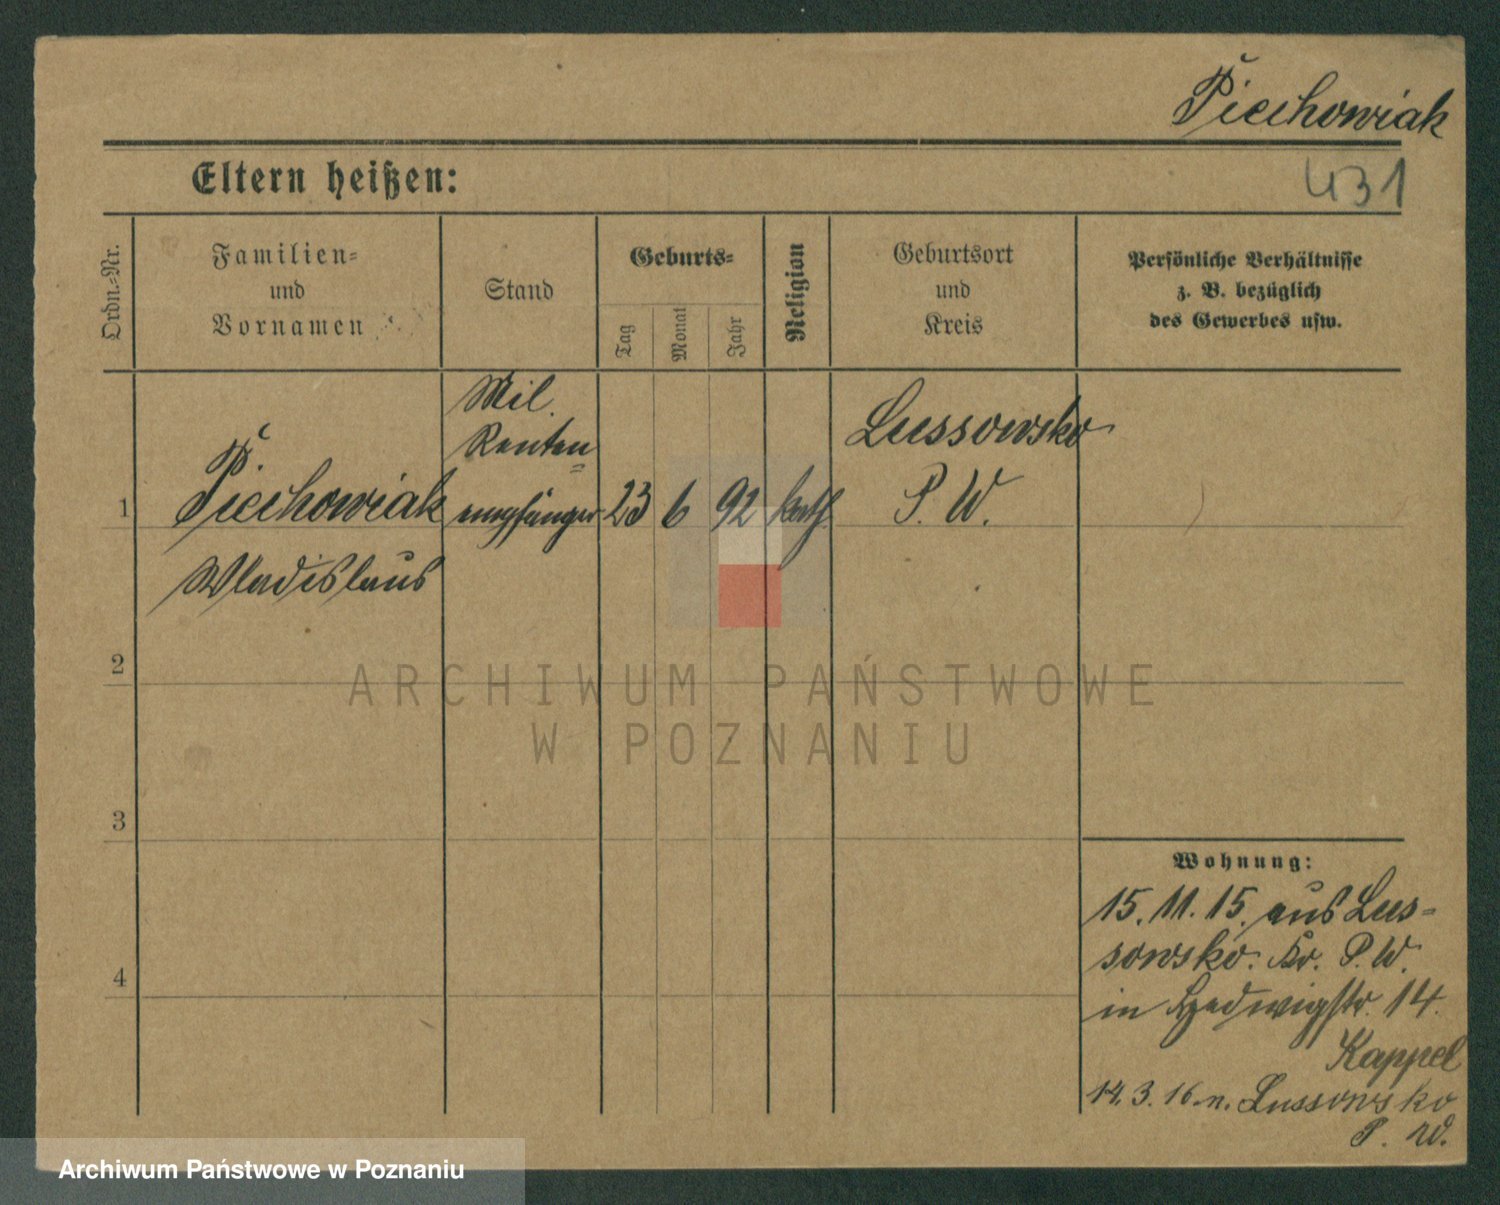 Piechowiak
431
Eltern heißen:
Ordn.-Nr.
Familien-
und
Vornamen
Stand
Geburts-
Tag
Monat
Jahr
Religion
Geburtsort
und
Kreis
Persönliche Verhältnisse
z. B. bezüglich
des Gewerbes usw.
1
Piechowiak
Wladislaus
Mil.
Renten=
empfänger
23
6
92
kath.
Lussowsko
P. W.
2
3
4
Wohnung:
15. 11. 15. aus Lus-
sowsko. Kr. P. W.
in Hedwigstr. 14.
Kappel
14. 3. 16. n. Lussowsko
P. W.
ARCHIWUM PAŃSTWOWE
W POZNANIU
Archiwum Państwowe w Poznaniu